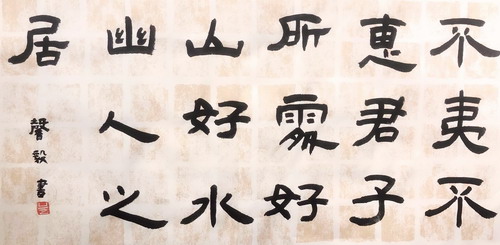 不夷不
惠君子
所處好
山好水
幽人之
居
馨毅書